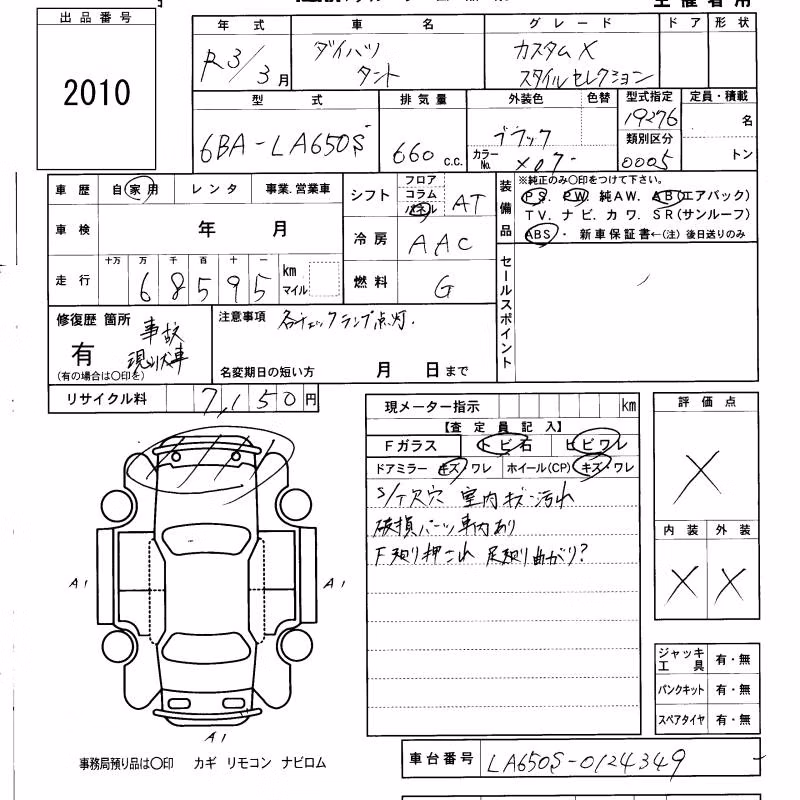 出品番号
2010
年式 車名 グレード ドア 形状
R3/3月 ダイハツ タント カスタムX スタイルセレクション
型式 排気量 外装色 色替 型式指定 定員・積載
6BA-LA650S 660 c.c. ブラック カラーNo. X07 19276 名
類別区分
0005 トン
車歴 自家用 レンタ 事業.営業車 シフト フロア コラム パネル AT
車検 年 月 冷房 AAC
走行 十万 万 千 百 十 一 km マイル 燃料 G
68595
装備品 ※純正のみ○印をつけて下さい。
PS. PW. 純AW. AB(エアバック)
TV. ナビ. カワ. SR(サンルーフ)
ABS・ 新車保証書←(注)後日送りのみ
セールスポイント
修復歴 箇所 事故
有 現状車
(有の場合は○印を)
注意事項 各チェックランプ点灯.
名変期日の短い方 月 日まで
リサイクル料 7,150円
現メーター指示 km
【査定員記入】
Fガラス トビ石 ヒビワレ
ドアミラー キズ・ワレ ホイール(CP) キズ・ワレ
S/T欠穴 室内キズ・汚れ
破損パーツ車内あり
F廻り押され 足廻り曲がり?
評価点
X
内装 外装
X X
A1 A1
A1
ジャッキ工具 有・無
パンクキット 有・無
スペアタイヤ 有・無
事務局預り品は○印 カギ リモコン ナビロム
車台番号 LA650S-0124349